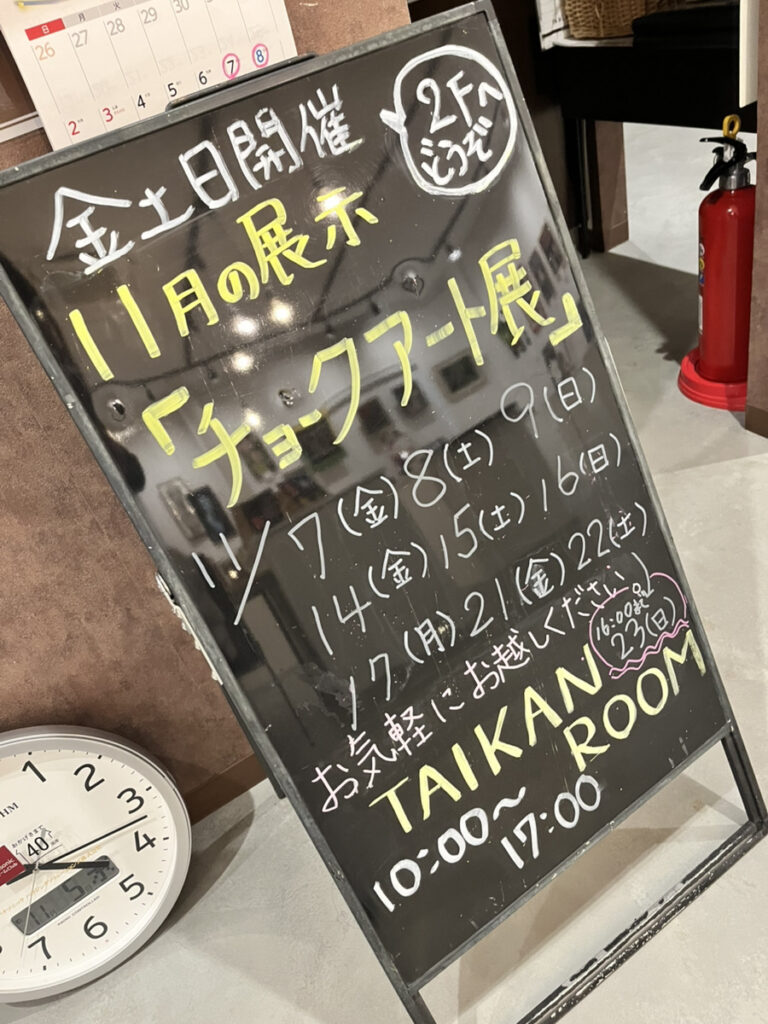 日 月 火
26 27 28 29 30
2 3 4 5 6 7 8
2Fへ
どうぞ
金土日開催
11月の展示
「チョークアート展」
11/7(金)8(土)9(日)
14(金)15(土)16(日)
17(月)21(金)22(土)
16:00まで
23(日)
お気軽にお越しください!
TAIKAN
ROOM
10:00〜
17:00
1
2
3
4
5
6
7
8
40